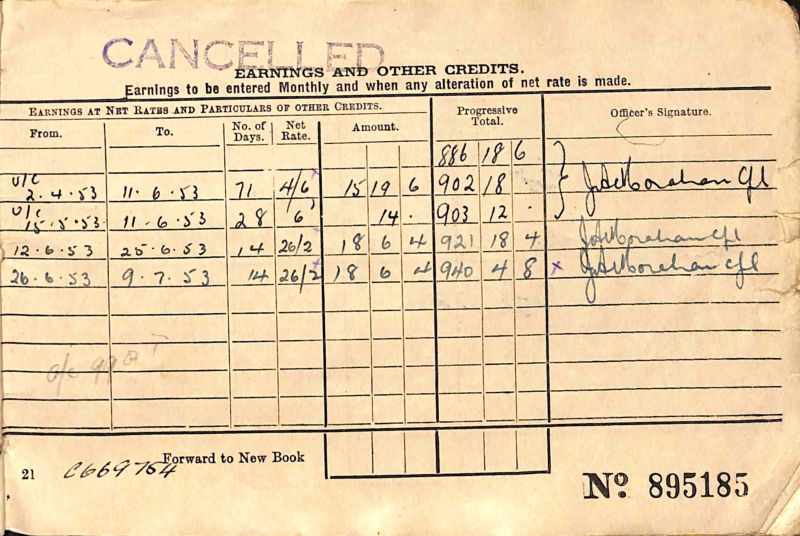 CANCELLED
EARNINGS AND OTHER CREDITS.
Earnings to be entered Monthly and when any alteration of net rate is made.
EARNINGS AT NET RATES AND PARTICULARS OF OTHER CREDITS. Progressive Total. Officer's Signature.
From. To. No. of Days. Net Rate. Amount.
886 18 6
U/C
2.4.53 11.6.53 71 4/6 15 19 6 902 18 .
U/C
15.5.53 11.6.53 28 6 14 . 903 12 .
12.6.53 25.6.53 14 26/2 18 6 4 921 18 4
26.6.53 9.7.53 14 26/2 18 6 4 940 4 8 x
Forward to New Book
21 C669764
Nº 895185